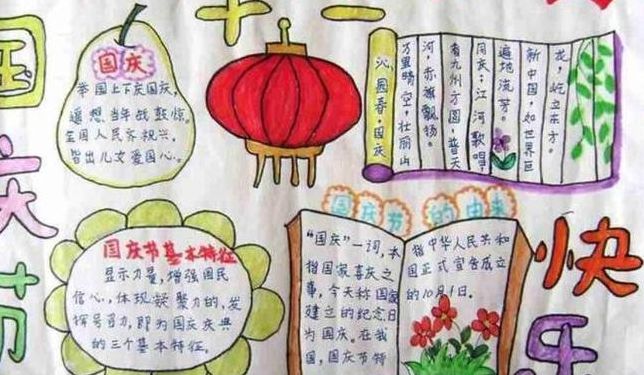 十一
国庆节
国庆
举国上下庆国庆，
遥想当年战鼓惊。
全国人民齐祝兴，
皆出儿女爱国心。
沁园春·国庆
万里晴空，壮丽山
河，赤旗飘扬。
看九州方圆，普天
同庆；江河歌唱，
遍地流芳。
新中国，如世界巨
龙，屹立东方。
国庆节基本特征
显示力量，增强国民
信心，体现凝聚力的，发
挥号召力，即为国庆庆典
的三个基本特征。
国庆节的由来
“国庆”一词，本
指国家喜庆之
事，今天称国家
建立的纪念日
为国庆。在我
国，国庆节特
指中华人民共和
国正式宣告成立
的10月1日。
快乐